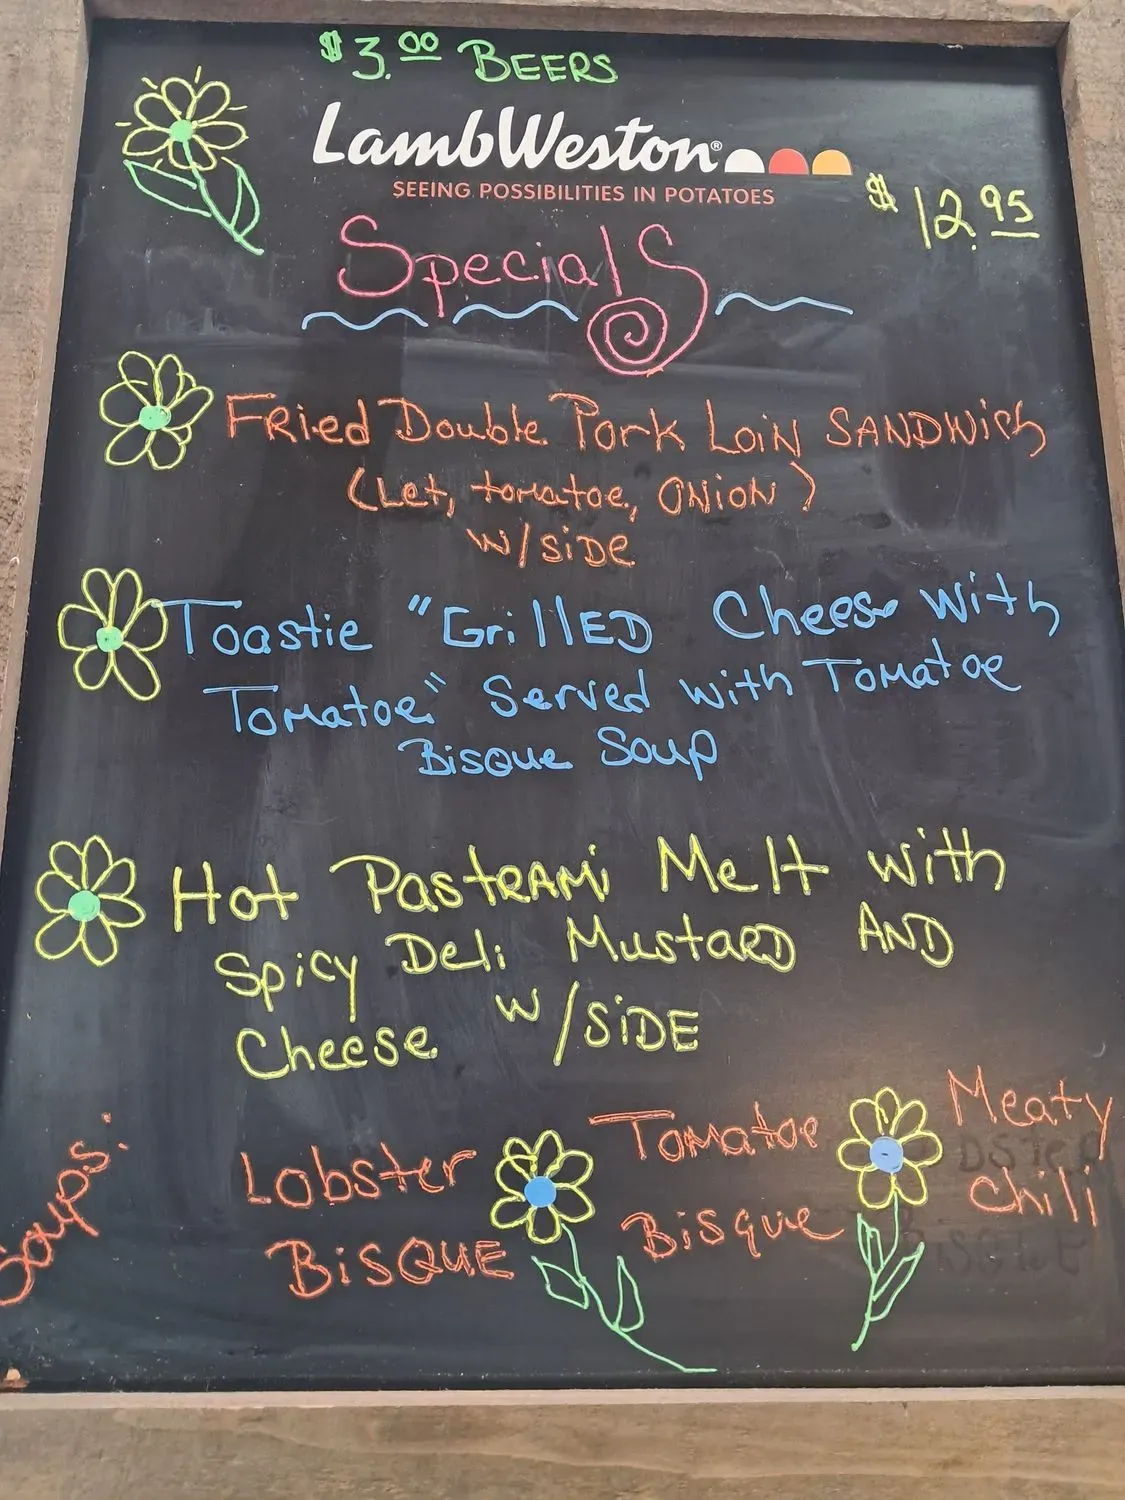 $3.00 BEERS
LambWeston®
SEEING POSSIBILITIES IN POTATOES
$12.95
Specials
FRied Double Pork Loin SANDWich
(Let, tomatoe, ONiON)
W/SiDe
Toastie "GrillED Cheese with
Tomatoe" Served with Tomatoe
Bisque Soup
Hot PastRAMi Melt with
Spicy Deli MustaRD AND
Cheese W/SiDE
Soups:
Lobster
BisQUE
Tomatoe
Bisque
Meaty
Chili